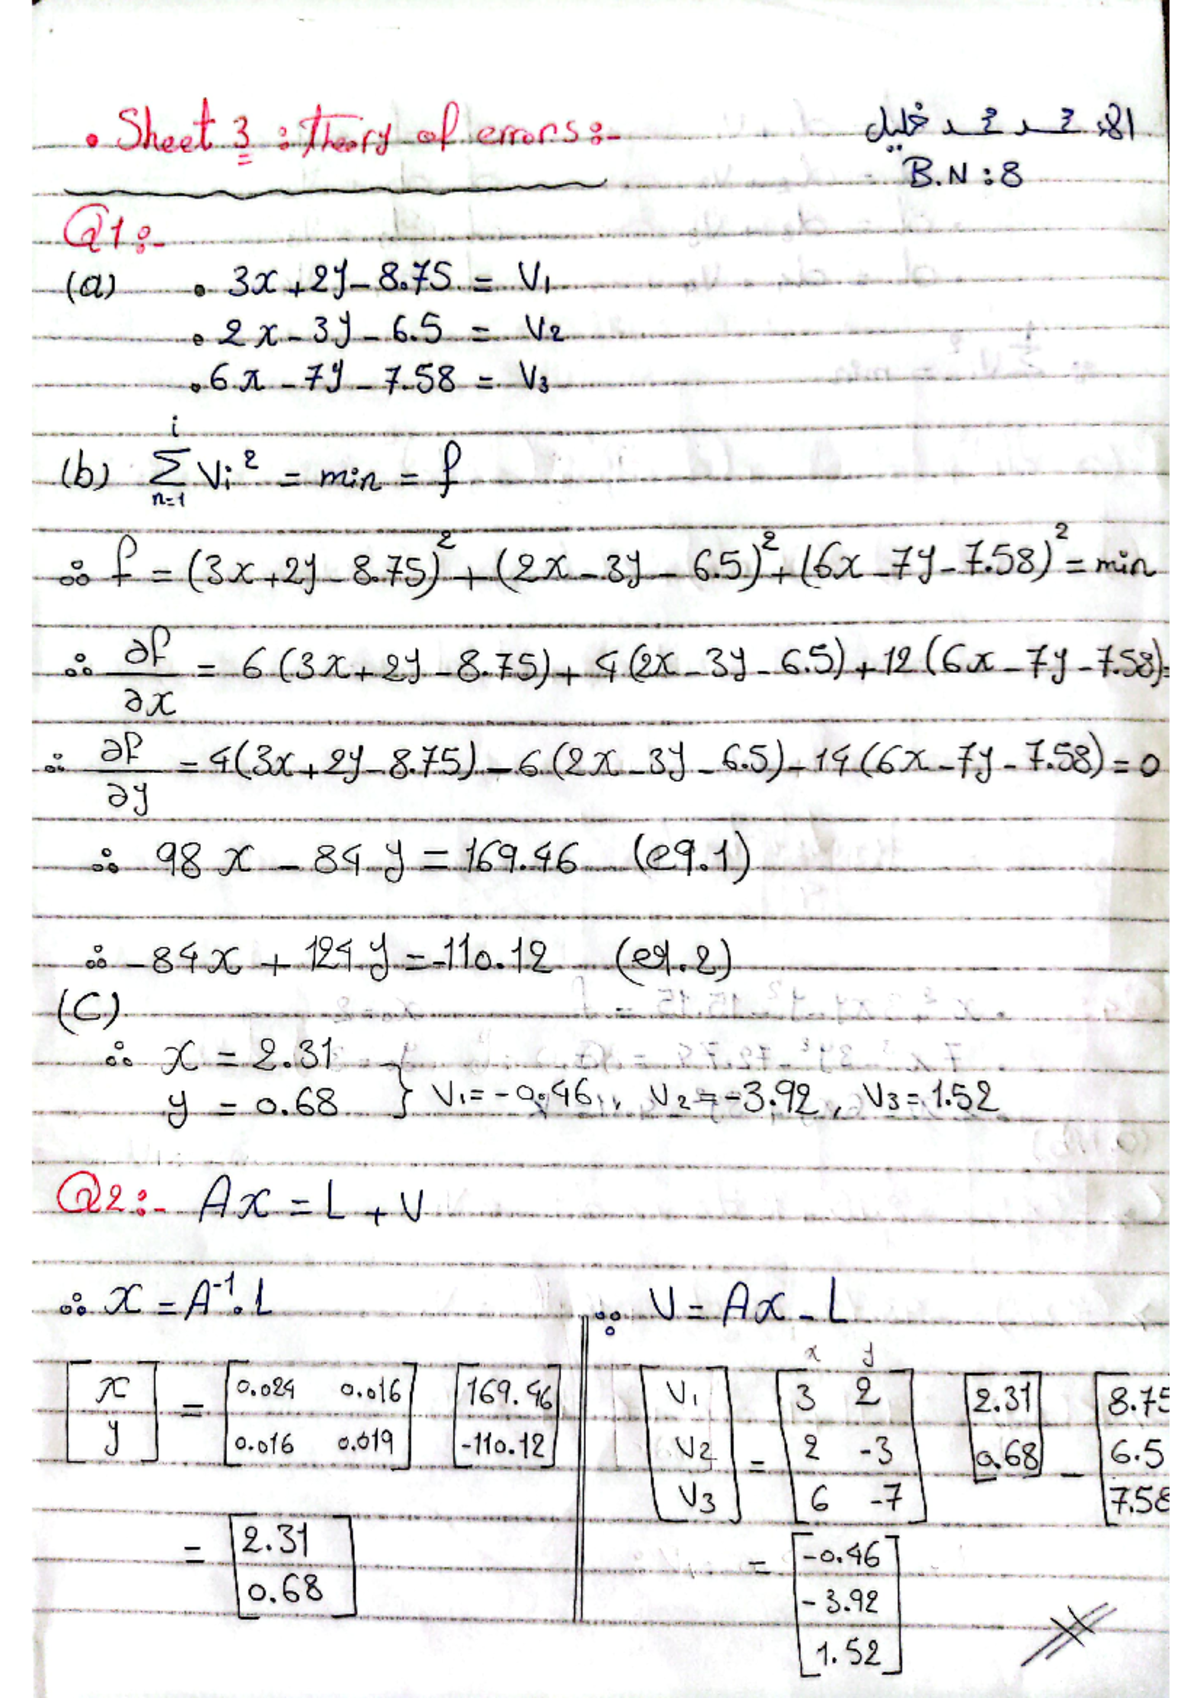 • Sheet 3 : Theory of errors :-
خليل
B.N : 8
Q1 :-
(a) • 3x + 2y - 8.75 = V1
• 2x - 3y - 6.5 = V2
• 6x - 7y - 7.58 = V3
(b) i Σ n=1 Vi² = min = f
∴ f = (3x + 2y - 8.75)² + (2x - 3y - 6.5)² + (6x - 7y - 7.58)² = min
∴ ∂f/∂x = 6(3x + 2y - 8.75) + 4(2x - 3y - 6.5) + 12(6x - 7y - 7.58) =
∴ ∂f/∂y = 4(3x + 2y - 8.75) - 6(2x - 3y - 6.5) - 14(6x - 7y - 7.58) = 0
∴ 98x - 84y = 169.46 (eq.1)
∴ -84x + 124y = -110.12 (eq.2)
(C)
∴ x = 2.31
y = 0.68 } V1 = -0.46, V2 = -3.92, V3 = 1.52
Q2 :- Ax = L + V
∴ x = A⁻¹.L
[x y] = [0.024 0.016
0.016 0.019] [169.46
-110.12]
= [2.31
0.68]
∴ V = Ax - L
x y
[V1 V2 V3] = [3 2
2 -3
6 -7] [2.31
0.68] - [8.75
6.5
7.58
= [-0.46
-3.92
1.52]